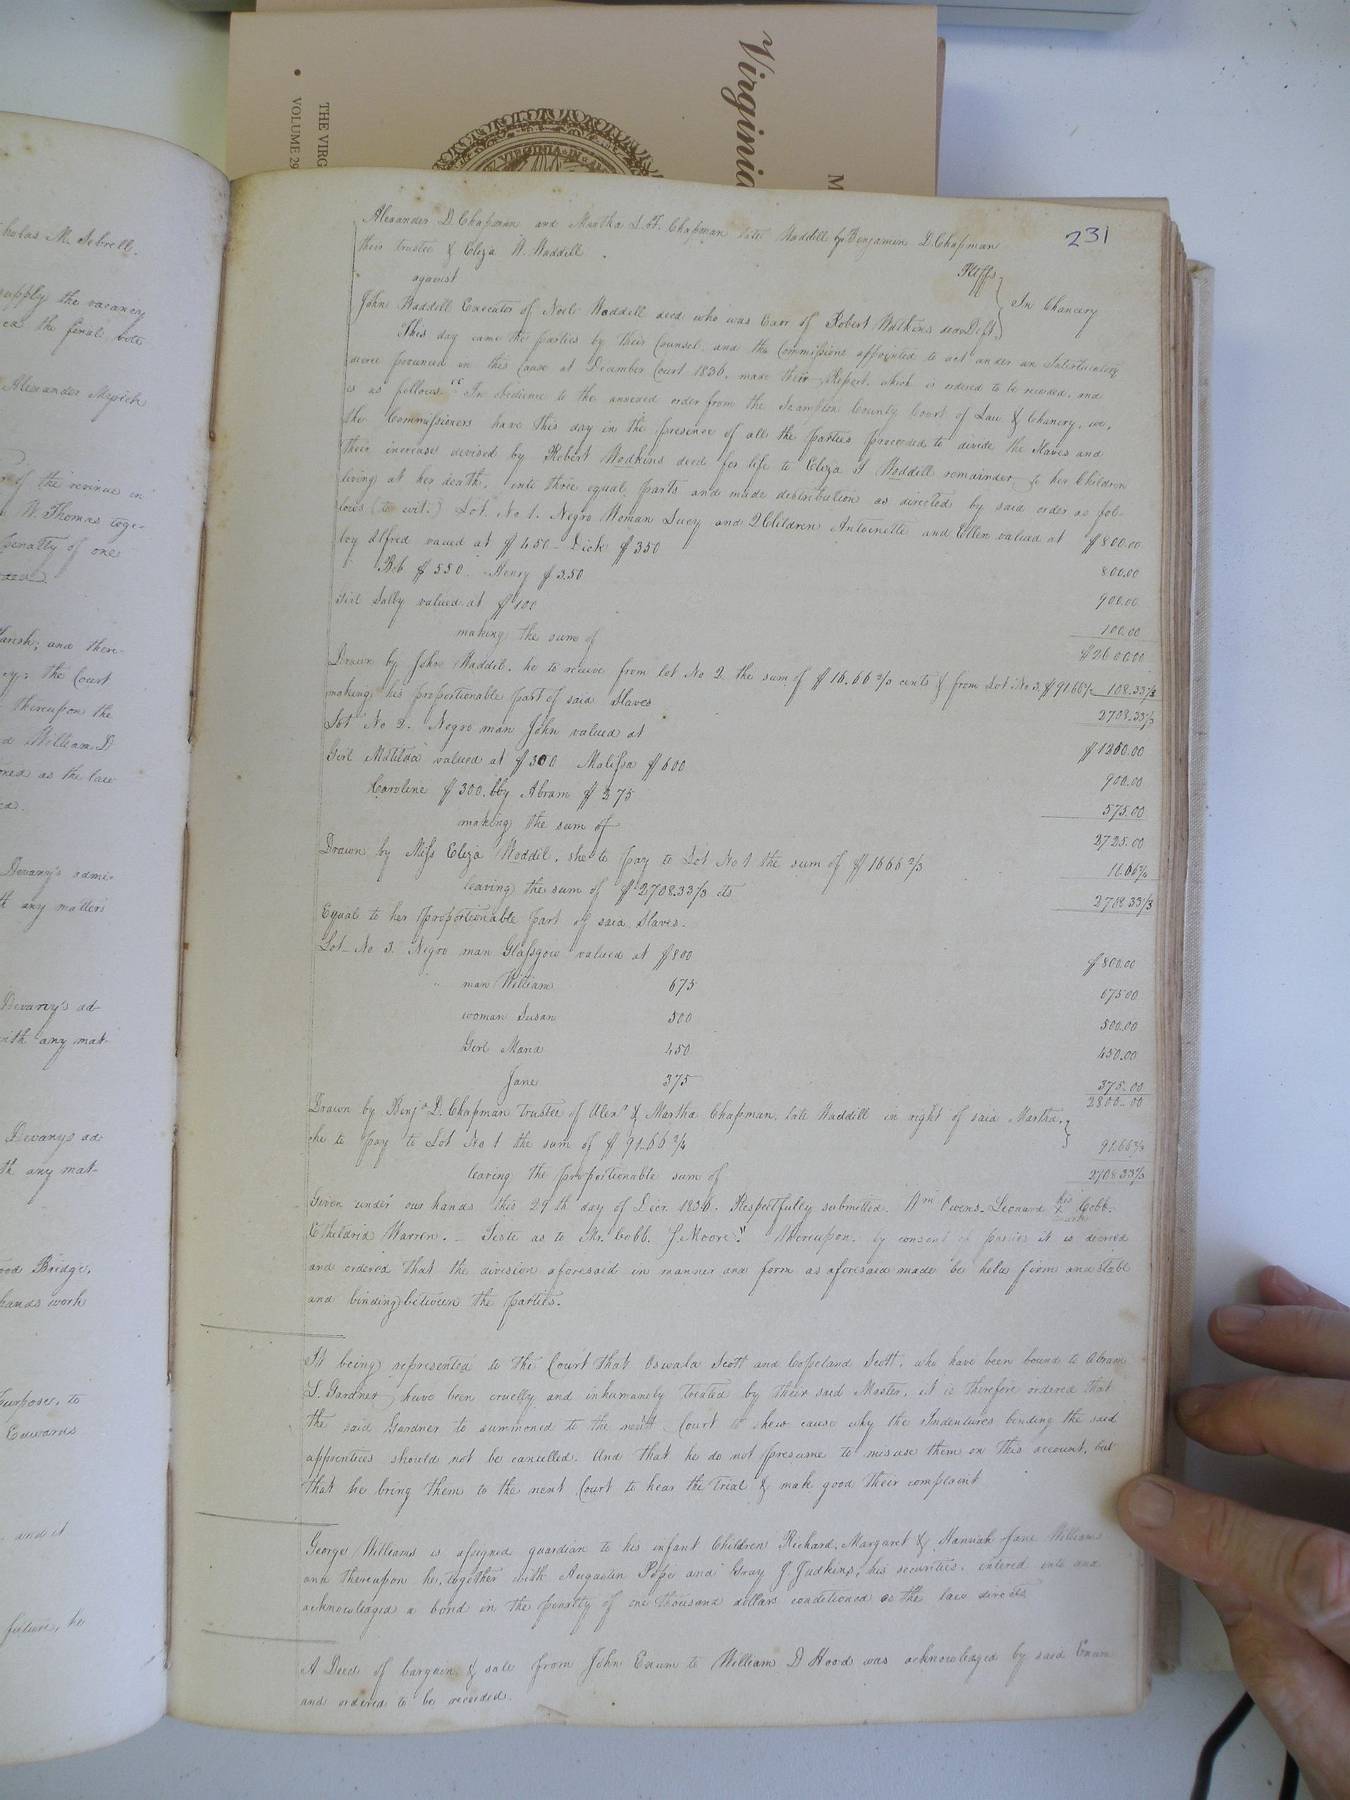 Virginia
M
THE VIRG
VOLUME 29
VIRGINIA
231
Alexander D. Chapman and Martha S. F. Chapman late Waddill by Benjamin D. Chapman
their trustee & Eliza W. Waddill
Pltffs
against
In Chancery
John Waddill Executor of Noel Waddill decd who was Exor of Robert Watkins decd Deft.
This day came the parties by their Counsel, and the Commissions appointed to act under an Interlocutory
decree pronounced in this Cause at December Court 1836, made their Report, which is ordered to be recorded, and
is as follows "In obedience to the annexed order from the Southampton County Court of Law & Chancery, we,
the Commissioners have this day in the presence of all the parties proceeded to divide the Slaves and
their increase devised by Robert Wadkins decd for life to Eliza S Waddill remainder to her Children
living at her death, into three equal parts and made distribution as directed by said order as fol-
lows (to wit.) Lot No 1. Negro Woman Lucy and 2 Children Antoinette and Ellen valued at $800.00
boy Alfred valued at $450 - Dick $350 800.00
Bob $550. Henry $350 900.00
Girl Sally valued at $100 100.00
making the sum of $2600.00
Drawn by John Waddil, he to receive from lot No 2 the sum of $16.66 2/3 cents & from Lot No 3. $91.66 2/3 108.33 1/3
making his proportionable part of said Slaves 2708.33 1/3
Lot No 2. Negro man John valued at $1250.00
Girl Matilda valued at $300 Malissa $600 900.00
Caroline $300. boy Abram $275 575.00
making the sum of 2725.00
Drawn by Miss Eliza Waddil, she to pay to Lot No 1 the sum of $16.66 2/3 16.66 2/3
leaving the sum of $2708.33 1/3 cts 2708.33 1/3
Equal to her proportionable part of said Slaves.
Lot No 3. Negro man Glassgow valued at $800 $800.00
" man William 675 675.00
woman Susan 500 500.00
Girl Maria 450 450.00
Jane 375 375.00
2800.00
Drawn by Benjn D. Chapman Trustee of Alexr & Martha Chapman, late Waddill in right of said Martha,
he to pay to Lot No 1 the sum of $91.66 2/3 91.66 2/3
leaving the proportionable sum of 2708.33 1/3
Given under our hands this 29th day of Decr. 1836. Respectfully submitted. Wm Owens. Leonard his X mark Cobb.
Etheldrid Warren. - Teste as to Mr. Cobb. J. Moore." Whereupon, by consent of parties it is decreed
and ordered that the division aforesaid in manner and form as aforesaid made be held firm and stable
and binding between the parties.
It being represented to the Court that Oswald Scott and Copeland Scott, who have been bound to Abram
S. Gardner have been cruelly and inhumanely treated by their said Master, it is therefore ordered that
the said Gardner be summoned to the next Court to shew cause why the Indentures binding the said
apprentices should not be cancelled. And that he do not presume to misuse them on this account, but
that he bring them to the next Court to hear the trial & make good their complaint
George Williams is assigned guardian to his infant Children Richard, Margaret & Hannah Jane Williams
and thereupon he, together with Augustin Pope and Gray J. Judkins, his securities, entered into and
acknowledged a bond in the penalty of one thousand dollars conditioned as the law directs
A Deed of bargain & sale from John Exum to William D Hood was acknowledged by said Exum
and ordered to be recorded.
cholas M. Sebrell.
supply the vacancy
the final vote
Alexander Myrick
of the revenue in
W. Thomas toge-
penalty of one
Parish; and there-
the Court
thereupon the
William D
as the law
Devany's admi-
any matters
Devany's ad-
with any mat-
Devanys ad-
any mat-
ood Bridge,
hands work
purpose, to
Edwards
and it
future, he